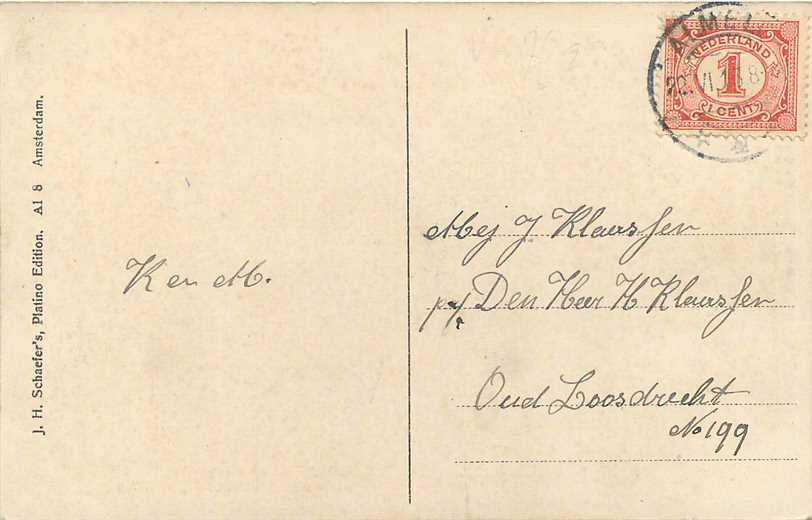 J. H. Schaefer's, Platino Edition. Al 8 Amsterdam.
K en M.
NEDERLAND
1
1 CENT
Mej J Klaassen
p/ Den Heer H Klaassen
Oud Loosdrecht
No 199